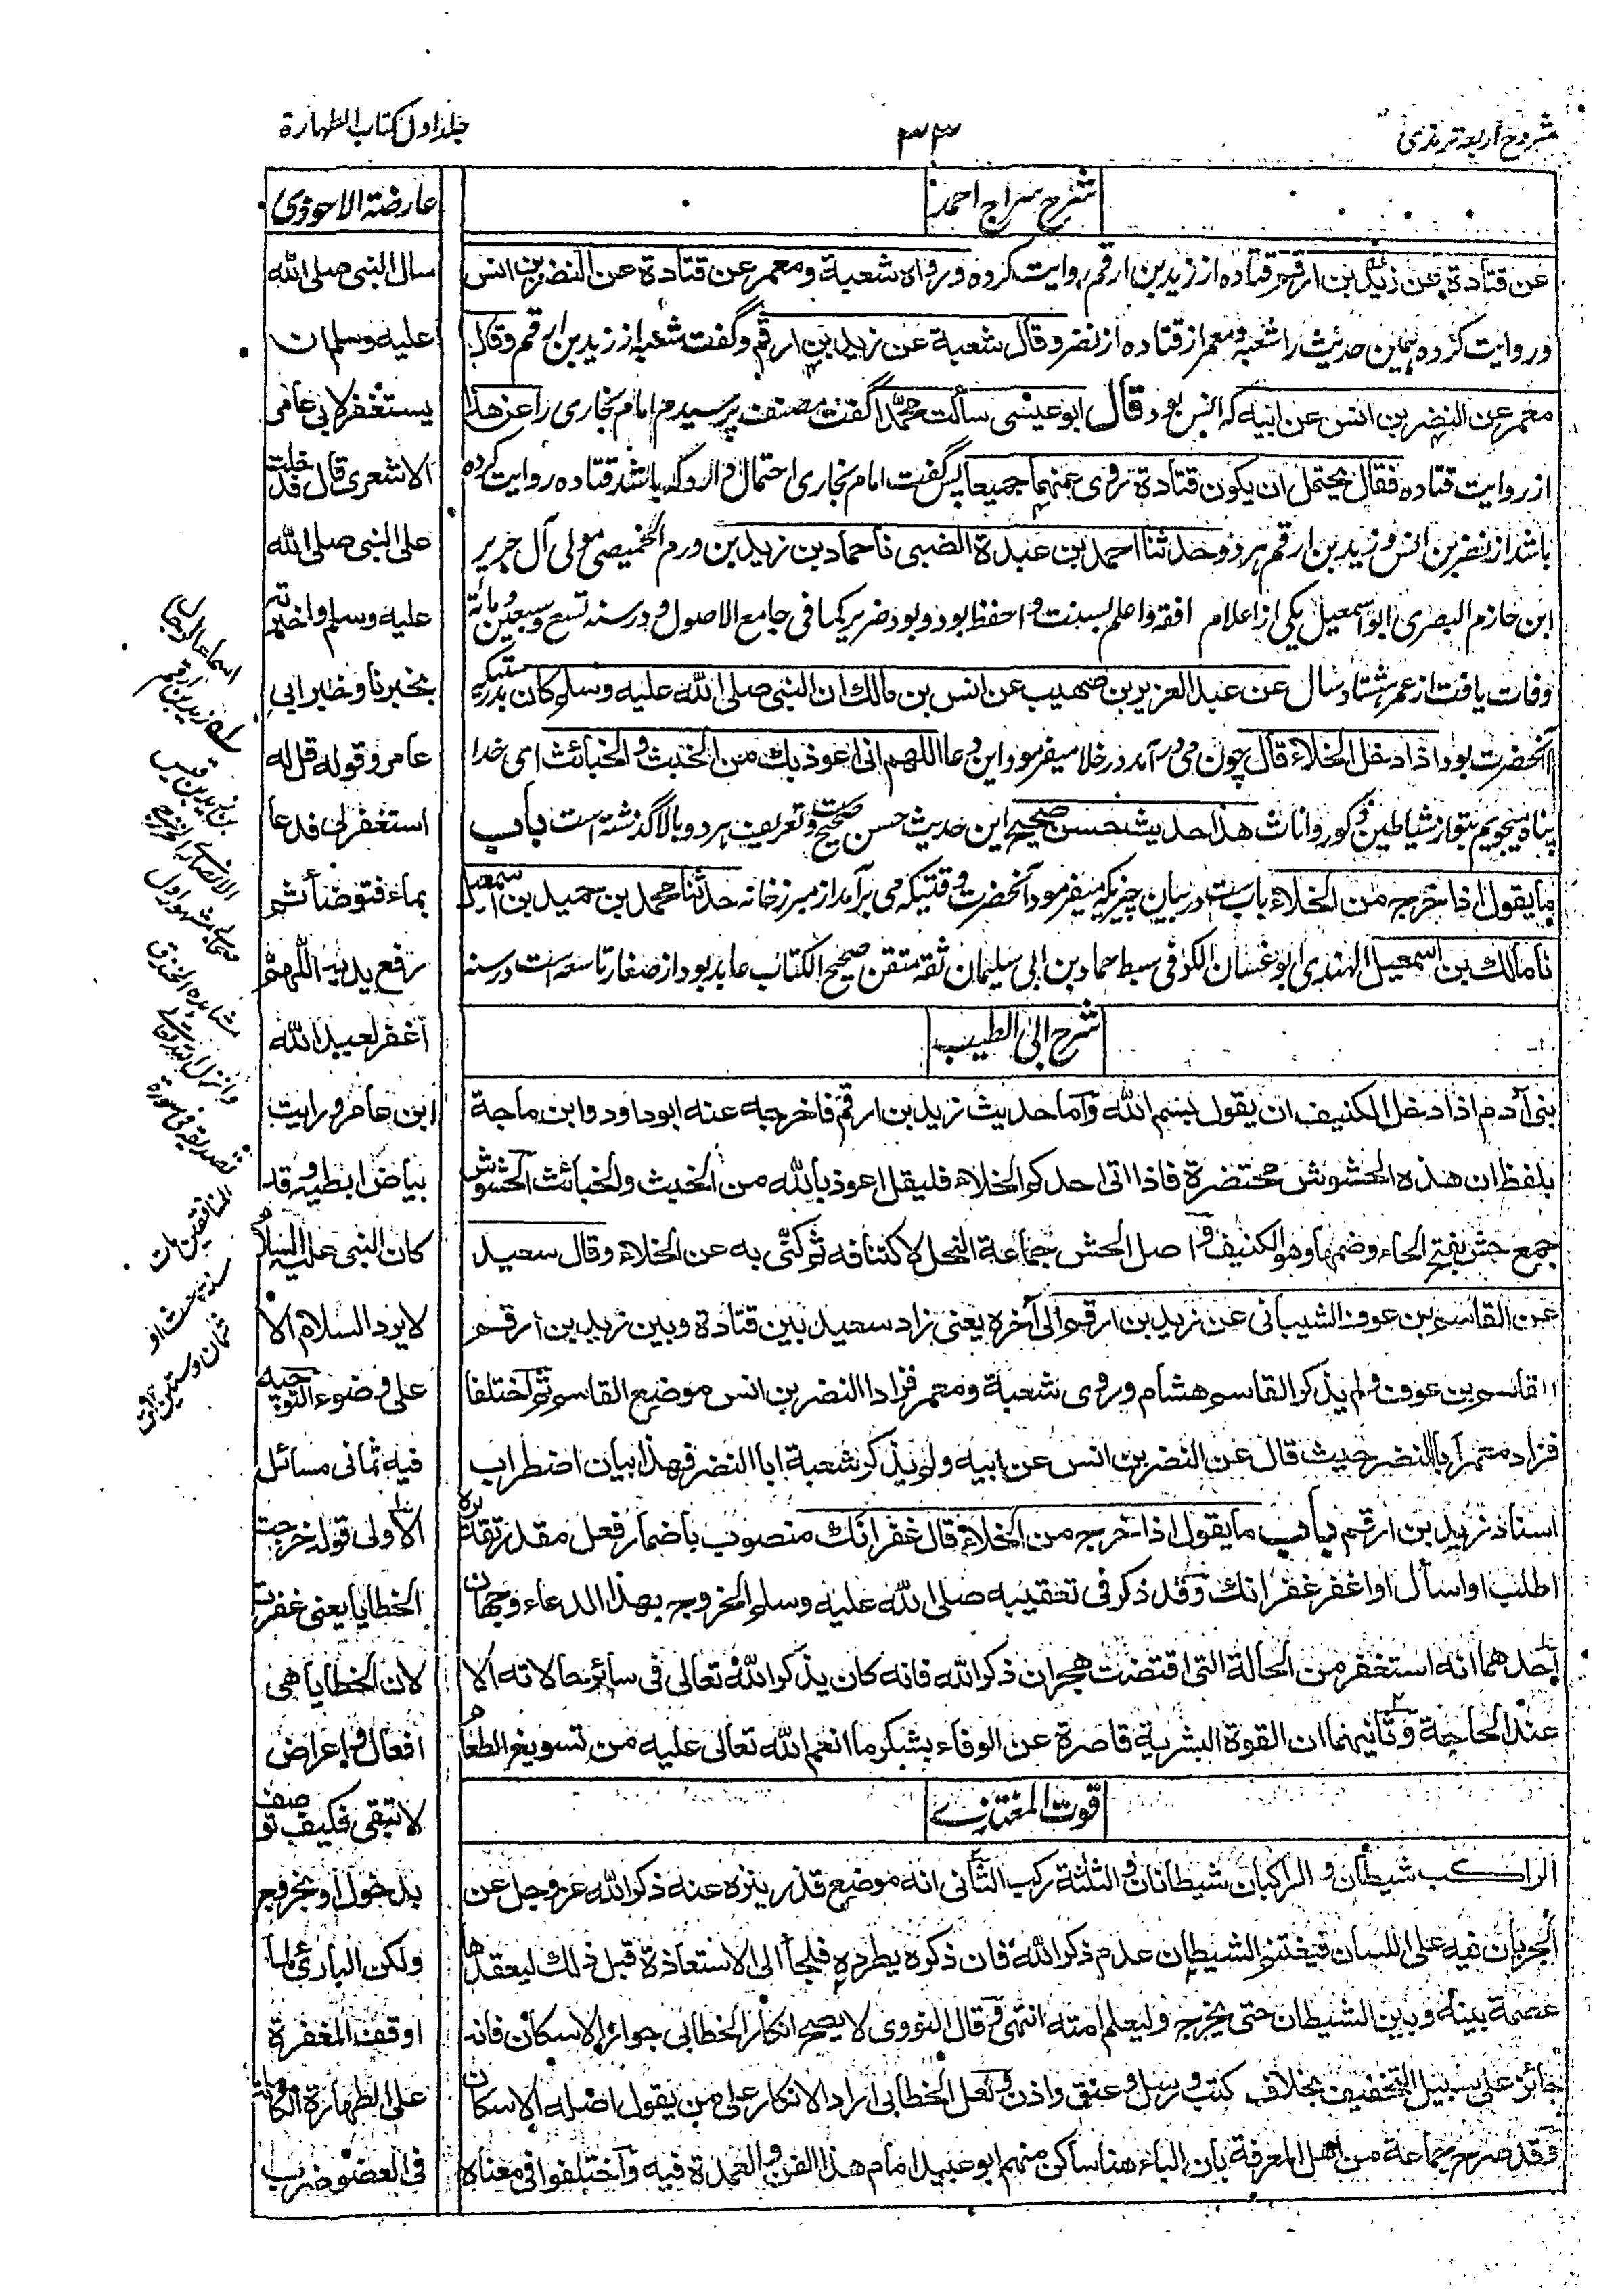 شروح اربعہ ترمذی
۳۳
جلد اول کتاب الطهارة
شرح سراج احمد
عن قتادة عن زيد بن ارقم قتاده از زید بن ارقم روایت کرده ورواه شعبة ومعمر عن قتادة عن النضر بن انس
وروایت کرده همین حدیث را شعبه ومعمر از قتاده از نضر وقال شعبة عن زيد بن ارقم وگفت شعبه از زید بن ارقم وقال
معمر عن النضر بن انس عن ابيه که انس بود قال ابو عيسى سألت محمدا گفت مصنف پرسیدم امام بخاری را عن هذا
از روایت قتاده فقال يحتمل ان يكون قتادة روى عنهما جميعا پس گفت امام بخاری احتمال دارد که باشد قتاده روایت کرده
باشد از نضر بن انس وزید بن ارقم هر دو حدثنا احمد بن عبدة الضبي نا حماد بن زيد بن درهم مولى آل جرير
ابن حازم البصرى ابو اسمعيل یکی از اعلام افقه واعلم بسنت واحفظ بود وبود ضریر کما فی جامع الاصول ودر سنه تسع وسبعين ومائة
وفات یافت از عمر هشتاد سال عن عبد العزيز بن صهيب عن انس بن مالك ان النبي صلى الله عليه وسلم كان بدرستیکه
آنحضرت بود اذا دخل الخلاء قال چون می در آمد در خلا میفرمود این دعا اللهم انى اعوذ بك من الخبث والخبائث ای خدا
پناه میجویم بتو از شیاطین ذکور واناث هذا حديث حسن صحيح این حدیث حسن صحیح ست وتعریف هر دو بالا گذشته است باب
ما يقول اذا خرج من الخلاء باب ست در بیان چیزیکه میفرمود آنحضرت وقتیکه می برآمد از مبرز خانه حدثنا محمد بن حميد بن اسمعيل
نا مالك بن اسمعيل الهندى ابو غسان الكوفى سبط حماد بن ابى سليمان ثقة متقن صحيح الكتاب عابد بود از صغار تاسعه است در سنه
شرح ابى الطيب
بنى آدم اذا دخل الكنيف ان يقول بسم الله وآما حديث زيد بن ارقم فاخرجه عنه ابو داود وابن ماجة
بلفظ ان هذه الحشوش محتضرة فاذا اتى احدكم الخلاء فليقل اعوذ بالله من الخبث والخبائث الحشوش
جمع حش بفتح الحاء وضمها وهو الكنيف واصل الحش جماعة النخل لاكتنافه ثم كنى به عن الخلاء وقال سعيد
عن القاسم بن عوف الشيبانى عن زيد بن ارقم الى آخره يعنى زاد سعيد بين قتادة وبين زيد بن ارقم
القاسم بن عوف ولم يذكر القاسم هشام وروى شعبة ومعمر فزادا النضر بن انس موضع القاسم ثم اختلفا
فزاد معتمر ابا النضر حيث قال عن النضر بن انس عن ابيه ولم يذكر شعبة ابا النضر فهذا بيان اضطراب
اسناد زيد بن ارقم باب ما يقول اذا خرج من الخلاء قال غفرانك منصوب باضمار فعل مقدر تقديره
اطلب او اسأل او اغفر غفرانك وقد ذكر فى تعقيبه صلى الله عليه وسلم الخروج بهذا الدعاء وجهان
احدهما انه استغفر من الحالة التى اقتضت هجران ذكر الله فانه كان يذكر الله تعالى فى سائر حالاته الا
عند الحاجة وثانيهما ان القوة البشرية قاصرة عن الوفاء بشكر ما انعم الله تعالى عليه من تسويغ الطعام
قوت المغتذى
الراكب شيطان والراكبان شيطانان والثلثة ركب الثانى انه موضع قذر ينزه عنه ذكر الله عز وجل عن
الجريان فيه على اللسان فيغتنم الشيطان عدم ذكر الله فان ذكره يطرده فلجأ الى الاستعاذة قبل ذلك ليعقدها
عصمة بينه وبين الشيطان حتى يخرج وليعلم امته انتهى وقال النووى لا يصح انكار الخطابى جواز الاسكان فانه
جائز على سبيل التخفيف بخلاف كتب ورسل وعنق واذن ولعل الخطابى اراد الانكار على من يقول اصله الاسكان
وقد صرح جماعة من اهل المعرفة بان الباء هنا ساكن منهم ابو عبيد امام هذا الفن والعمدة فيه واختلفوا فى معناه
عارضة الاحوذى
سال النبى صلى الله
عليه وسلم ان
يستغفر لابى عامر
الاشعرى قال فدخلت
على النبى صلى الله
عليه وسلم واخبرته
بخبرنا وخبر ابى
عامر وقوله قل له
استغفر لى فدعا
بماء فتوضأ ثم
رفع يديه اللهم
اغفر لعبيد الله
ابن عامر ورايت
بياض ابطيه وقد
كان النبى عليه السلام
لا يرد السلام الا
على وضوء التوجيه
فيه ثمانى مسائل
الاولى قوله خرجت
الخطايا يعنى غفرت
لان الخطايا هى
افعال واعراض
لا تبقى فكيف توصف
بدخول او بخروج
ولكن البارئ لما
اوقف المغفرة
على الطهارة الكاملة
فى العضو ضرب
اسماء الرجال
له زيد بن ارقم
بن زيد بن قيس
الانصارى الخزرجى
صحابى مشهور اول
مشاهده الخندق
وانزل الله تعالى
تصديقه فى سورة
المنافقين مات
سنة ست او
ثمان وستين